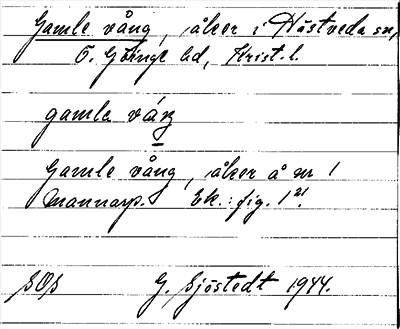 Gamle vång, åker i Hästveda sn,
Ö. Göinge hd, Krist. l.
gamla våŋ
Gamle vång, åker å nr 1
Mannarp. Ek.: fig. 121.
SOS G. Sjöstedt 1944.